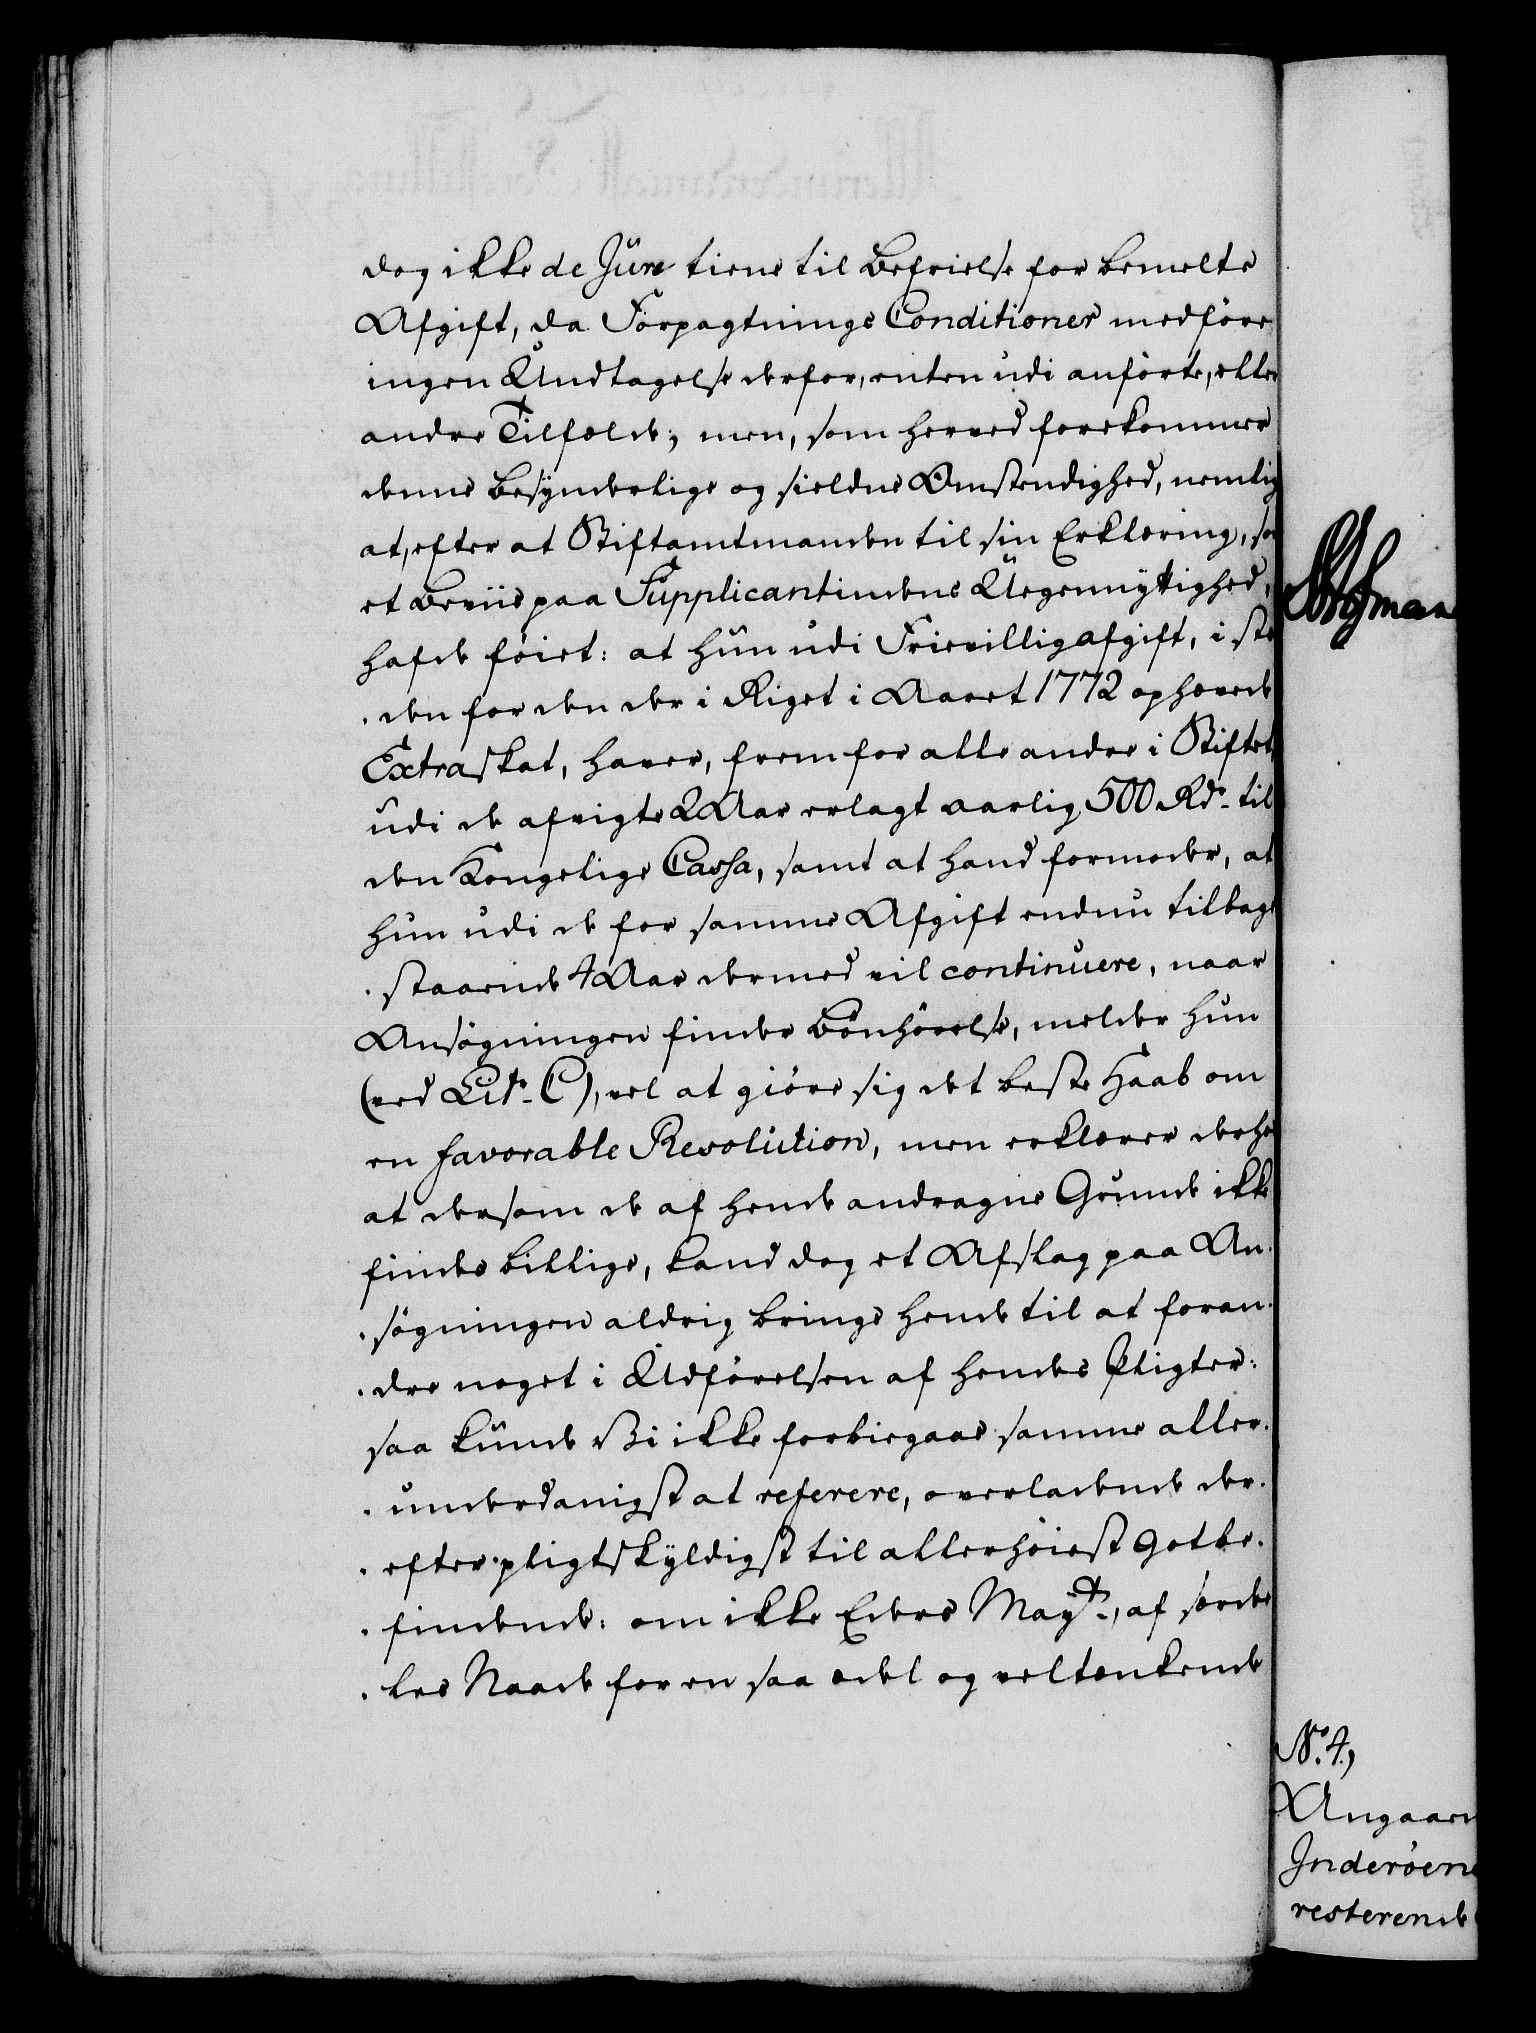 dog ikke de Jure tiene til Befrielse for bemelte
Afgift, da Forpagtnings Conditioner medföre
ingen Undtagelse derfor, enten udi anförte, eller
andre Tilfælde; men, som herved forekommer
denne besynderlige og sieldne Omstendighed, nemlig
at, efter at Stiftamtmanden til sin Erklæring, som
et Beviis paa Supplicantindens Uegennyttighed,
hafde föiet: at hun udi Frievilligafgift, i ste-
-den for den der i Riget i Aaret 1772 ophævede
Extraskat, haver, frem for alle andre i Stiftet
udi de afvigte 2 Aar erlagt aarlig 500 Rdr. til
den Kongelige Cassa, samt at hand formoder, at
hun udi de for samme Afgift endnu tilbage
-staaende 4 Aar dermed vil continuere, naar
Ansögningen finder Bönhörelse, melder hun
(ved Litr. C), vel at giöre sig det beste Haab om
en favorable Resolution, men erklærer derhos
at dersom de af hende andragne Grunde ikke
findes billige, kand dog et Afslag paa An-
-sögningen aldrig bringe hende til at foran-
-dre noget i Udförelsen af hendes Pligter:
saa kunde Vi ikke forbiegaae samme aller-
-underdanigst at referere, overladende der-
-efter pligtskyldigst til allerhöiest Gotbe-
-findende: om ikke Eders Mayt., af særde-
-les Naade for en saa ædel og veltænkende
No. 4,
Angaaen
Inderöens
resterende